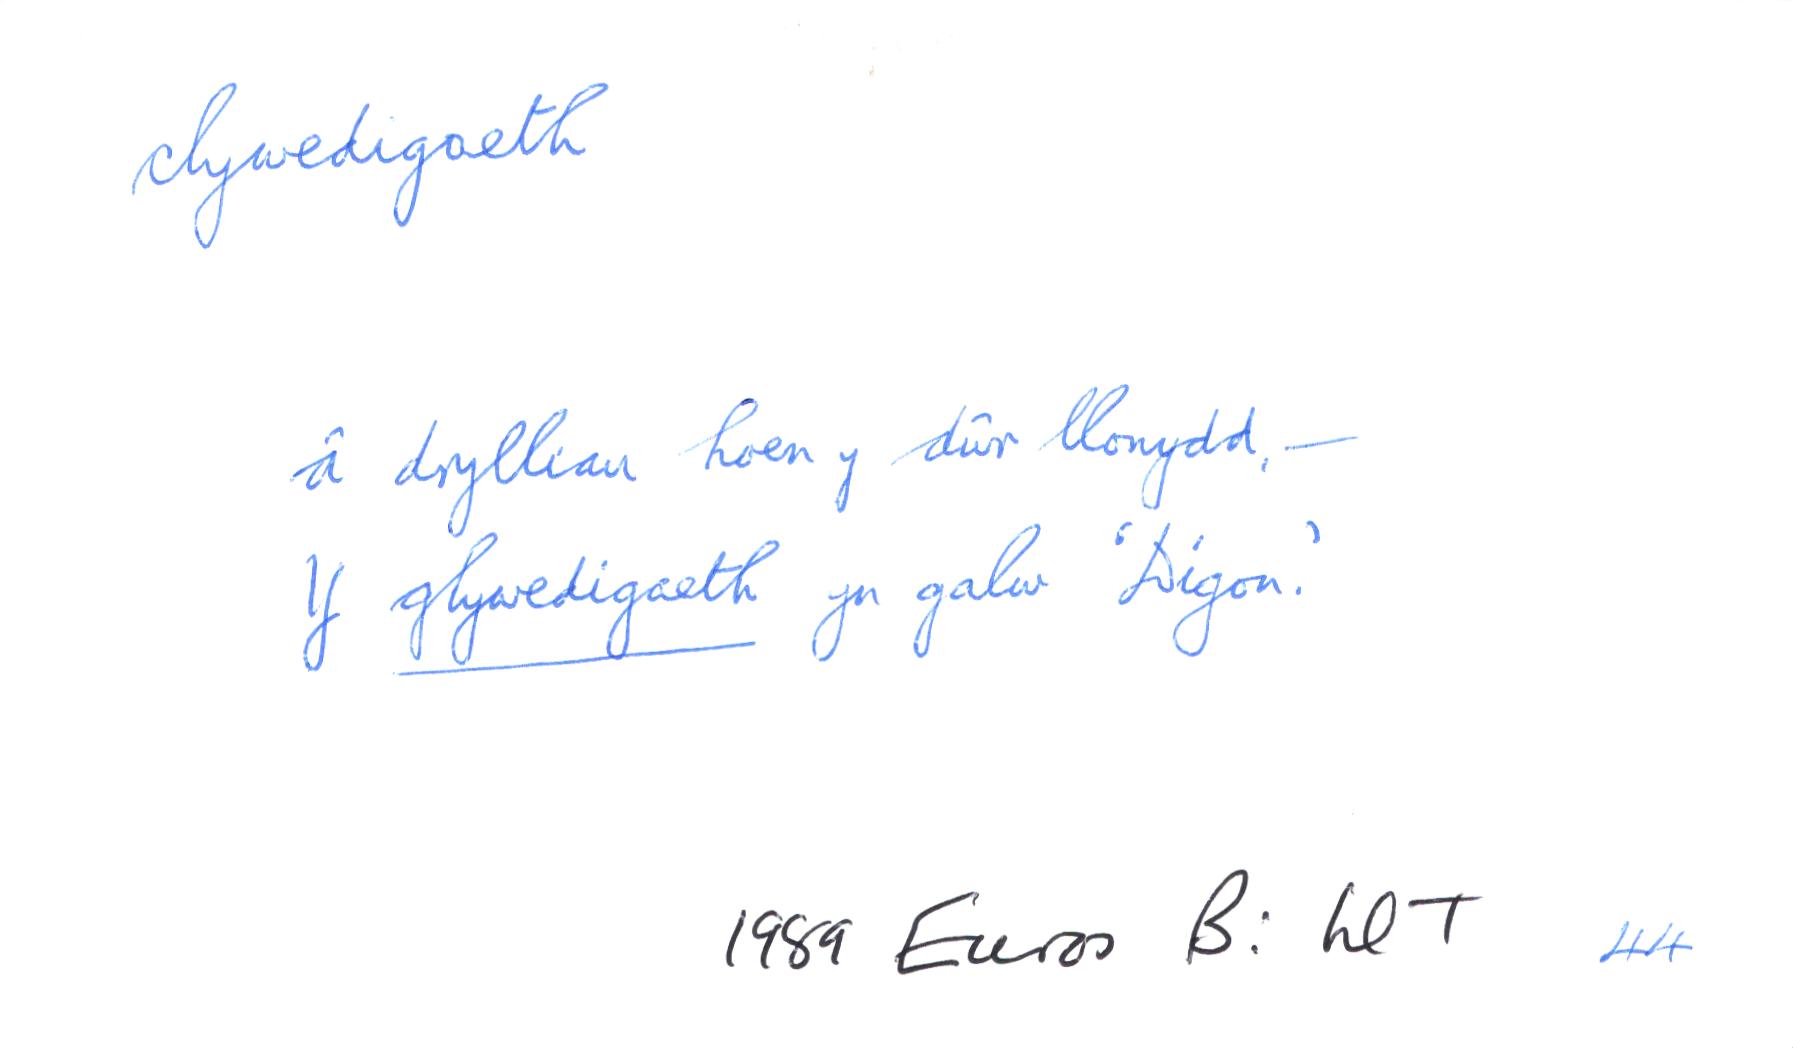 clywedigaeth
â drylliau hoen y dûr llonydd, —
Y glywedigaeth yn galw 'Digon.'
1989 Euros B: hlT 44